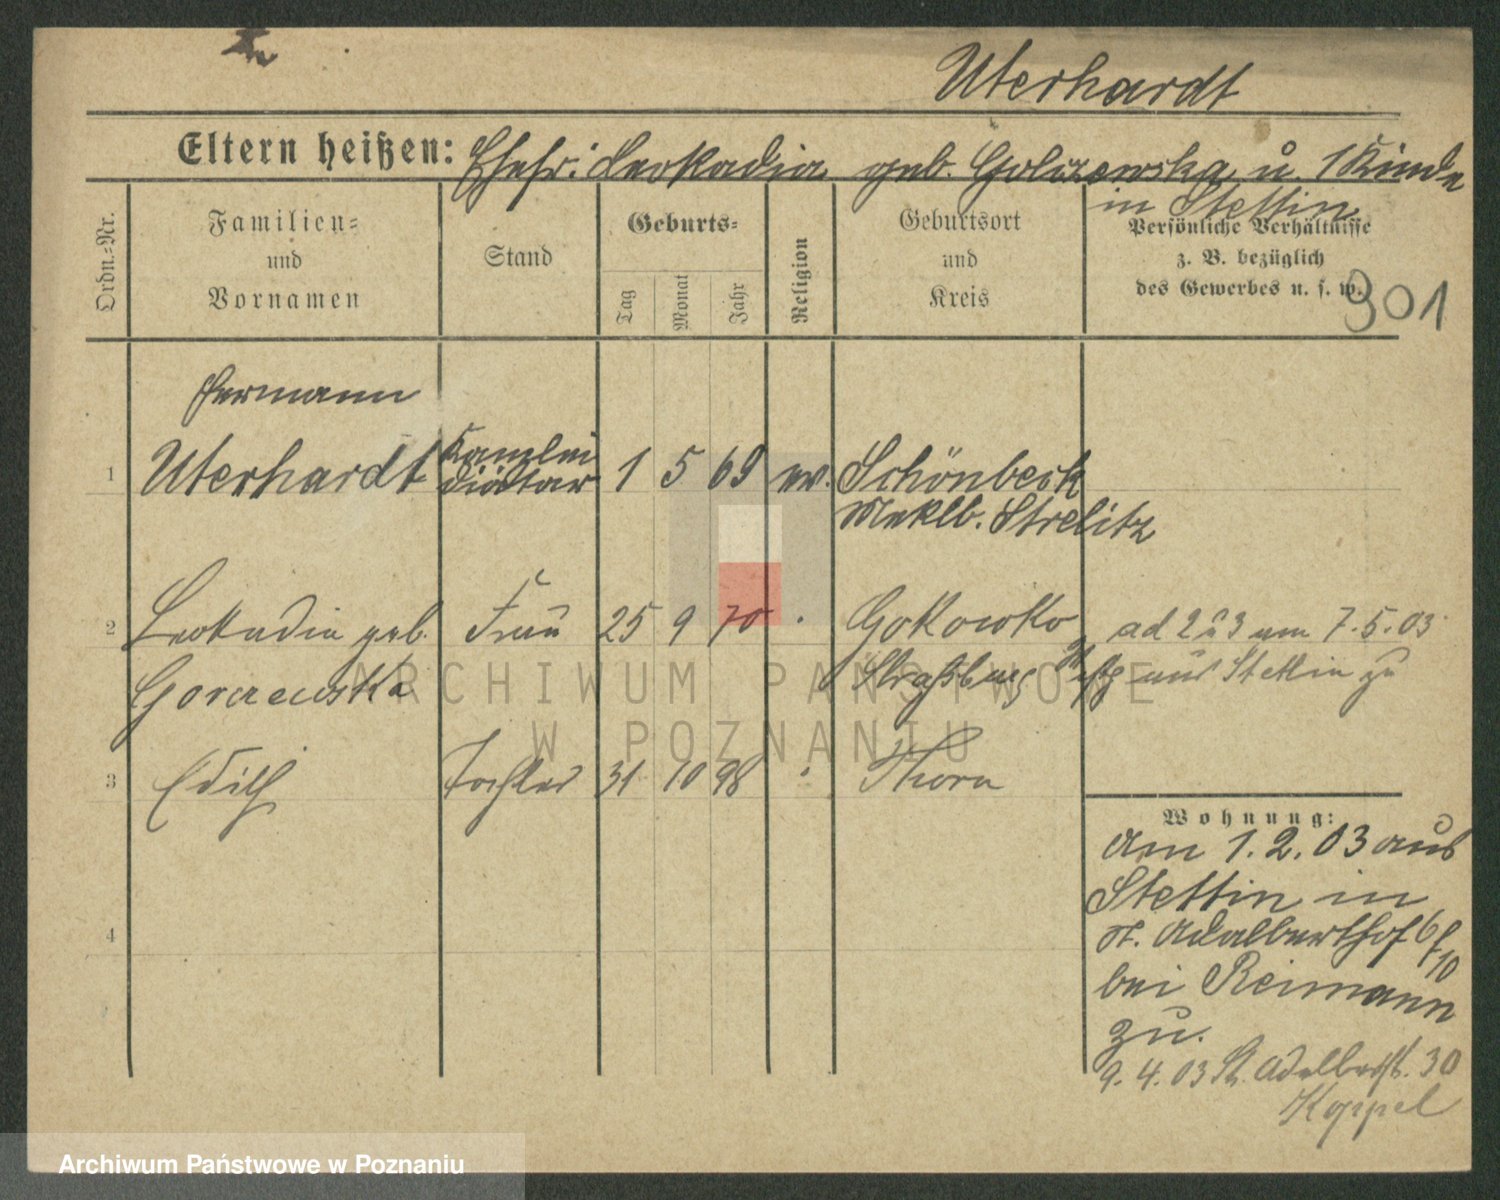 Uterhardt
Eltern heißen: Ehefr. Leokadia geb. Golizewska u. 1 Kinde
in Stettin
Ordn.-Nr.
Familien-
und
Vornamen
Stand
Geburts-
Tag
Monat
Jahr
Religion
Geburtsort
und
Kreis
Persönliche Verhältnisse
z. B. bezüglich
des Gewerbes u. s. w.
901
Hermann
1 Uterhardt Kanzlei
diätar 1 5 69 ev. Schönbeck
Meklb. Strelitz
2 Leokadia geb. Frau 25 9 70 Gokowko ad 2 u 3 am 7.5.03
Strasburg aus Stettin zu
3 Edith Tochter 31 10 98 Thorn
4
Wohnung:
Am 1.2.03 aus
Stettin in
St. Adalberthof 6/10
bei Reimann
zu.
9.4.03 St. Adalbertst. 30
Koppel
ARCHIWUM PAŃSTWOWE
W POZNANIU
Archiwum Państwowe w Poznaniu